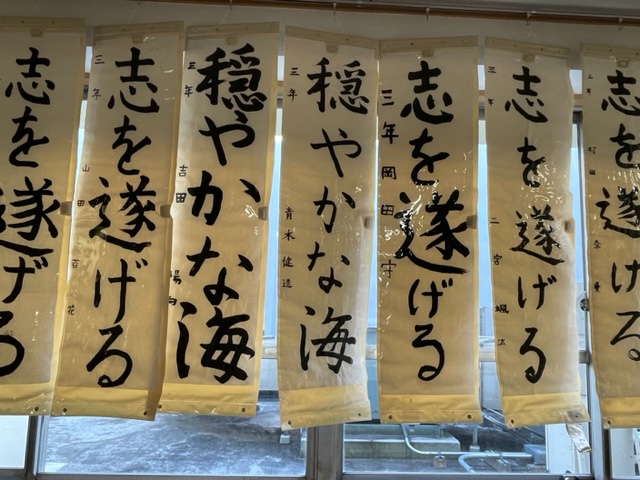 志を遂げる
二年
志を遂げる
三年 二宮颯
志を遂げる
三年 岡田守
穏やかな海
三年 青木健造
穏やかな海
三年 吉田陽向
志を遂げる
三年 山田百花
志を遂げる